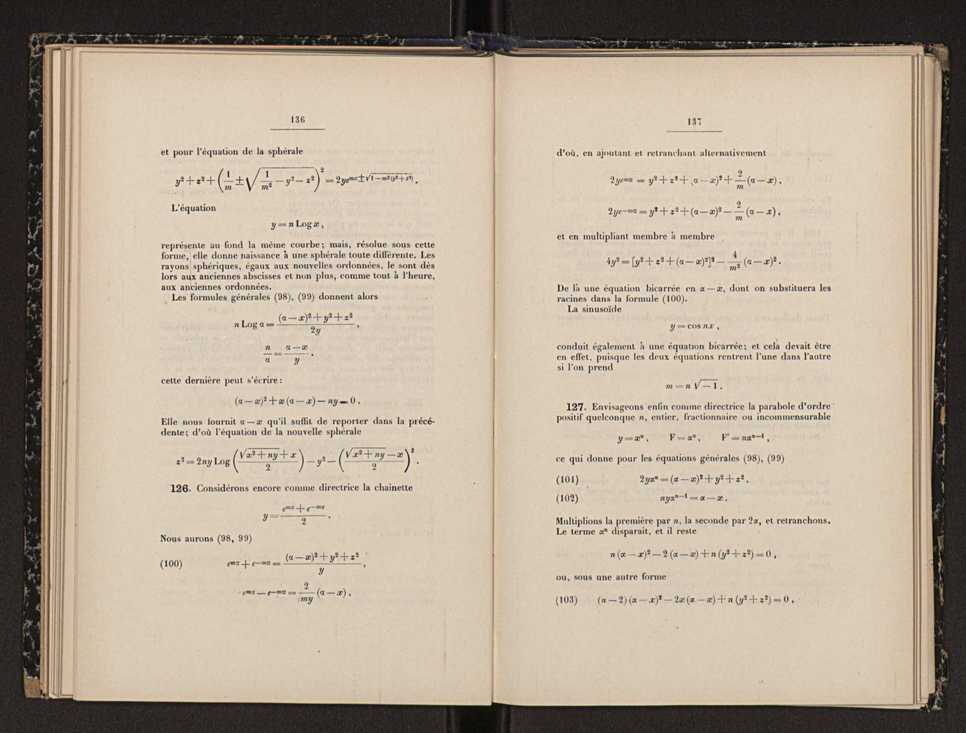 136
et pour l'équation de la sphérale
y² + z² + (1/m ± √(1/m² — y² — z²))² = 2ye^{mx ± √(1 — m²(y² + z²))} .
L'équation
y = n Log x ,
représente au fond la même courbe; mais, résolue sous cette
forme, elle donne naissance à une sphérale toute différente. Les
rayons sphériques, égaux aux nouvelles ordonnées, le sont dès
lors aux anciennes abscisses et non plus, comme tout à l'heure,
aux anciennes ordonnées.
Les formules générales (98), (99) donnent alors
n Log α = ((α — x)² + y² + z²)/2y ,
n/α = (α — x)/y .
cette dernière peut s'écrire :
(α — x)² + x (α — x) — ny = 0 .
Elle nous fournit α — x qu'il suffit de reporter dans la précé-
dente; d'où l'équation de la nouvelle sphérale
z² = 2ny Log ((√(x² + ny) + x)/2) — y² — ((√(x² + ny) — x)/2)² .
126. Considérons encore comme directrice la chainette
y = (e^{mx} + e^{—mx})/2 .
Nous aurons (98, 99)
(100) e^{mα} + e^{—mα} = ((α — x)² + y² + z²)/y ,
e^{mα} — e^{—mα} = 2/my (α — x) ,
137
d'où, en ajoutant et retranchant alternativement
2ye^{mα} = y² + z² + (α — x)² + 2/m (α — x) ,
2ye^{—mα} = y² + z² + (α — x)² — 2/m (α — x) ,
et en multipliant membre à membre
4y² = [y² + z² + (α — x)²]² — 4/m² (α — x)² .
De là une équation bicarrée en α — x, dont on substituera les
racines dans la formule (100).
La sinusoïde
y = cos nx ,
conduit également à une équation bicarrée; et cela devait être
en effet, puisque les deux équations rentrent l'une dans l'autre
si l'on prend
m = n √—1 .
127. Envisageons enfin comme directrice la parabole d'ordre
positif quelconque n, entier, fractionnaire ou incommensurable
y = xⁿ , F = αⁿ , F' = nαⁿ⁻¹ ,
ce qui donne pour les équations générales (98), (99)
(101) 2yαⁿ = (α — x)² + y² + z² .
(102) nyαⁿ⁻¹ = α — x .
Multiplions la première par n, la seconde par 2α, et retranchons.
Le terme αⁿ disparait, et il reste
n (α — x)² — 2 (α — x) + n (y² + z²) = 0 ,
ou, sous une autre forme
(103) (n — 2) (α — x)² — 2x (α — x) + n (y² + z²) = 0 ,